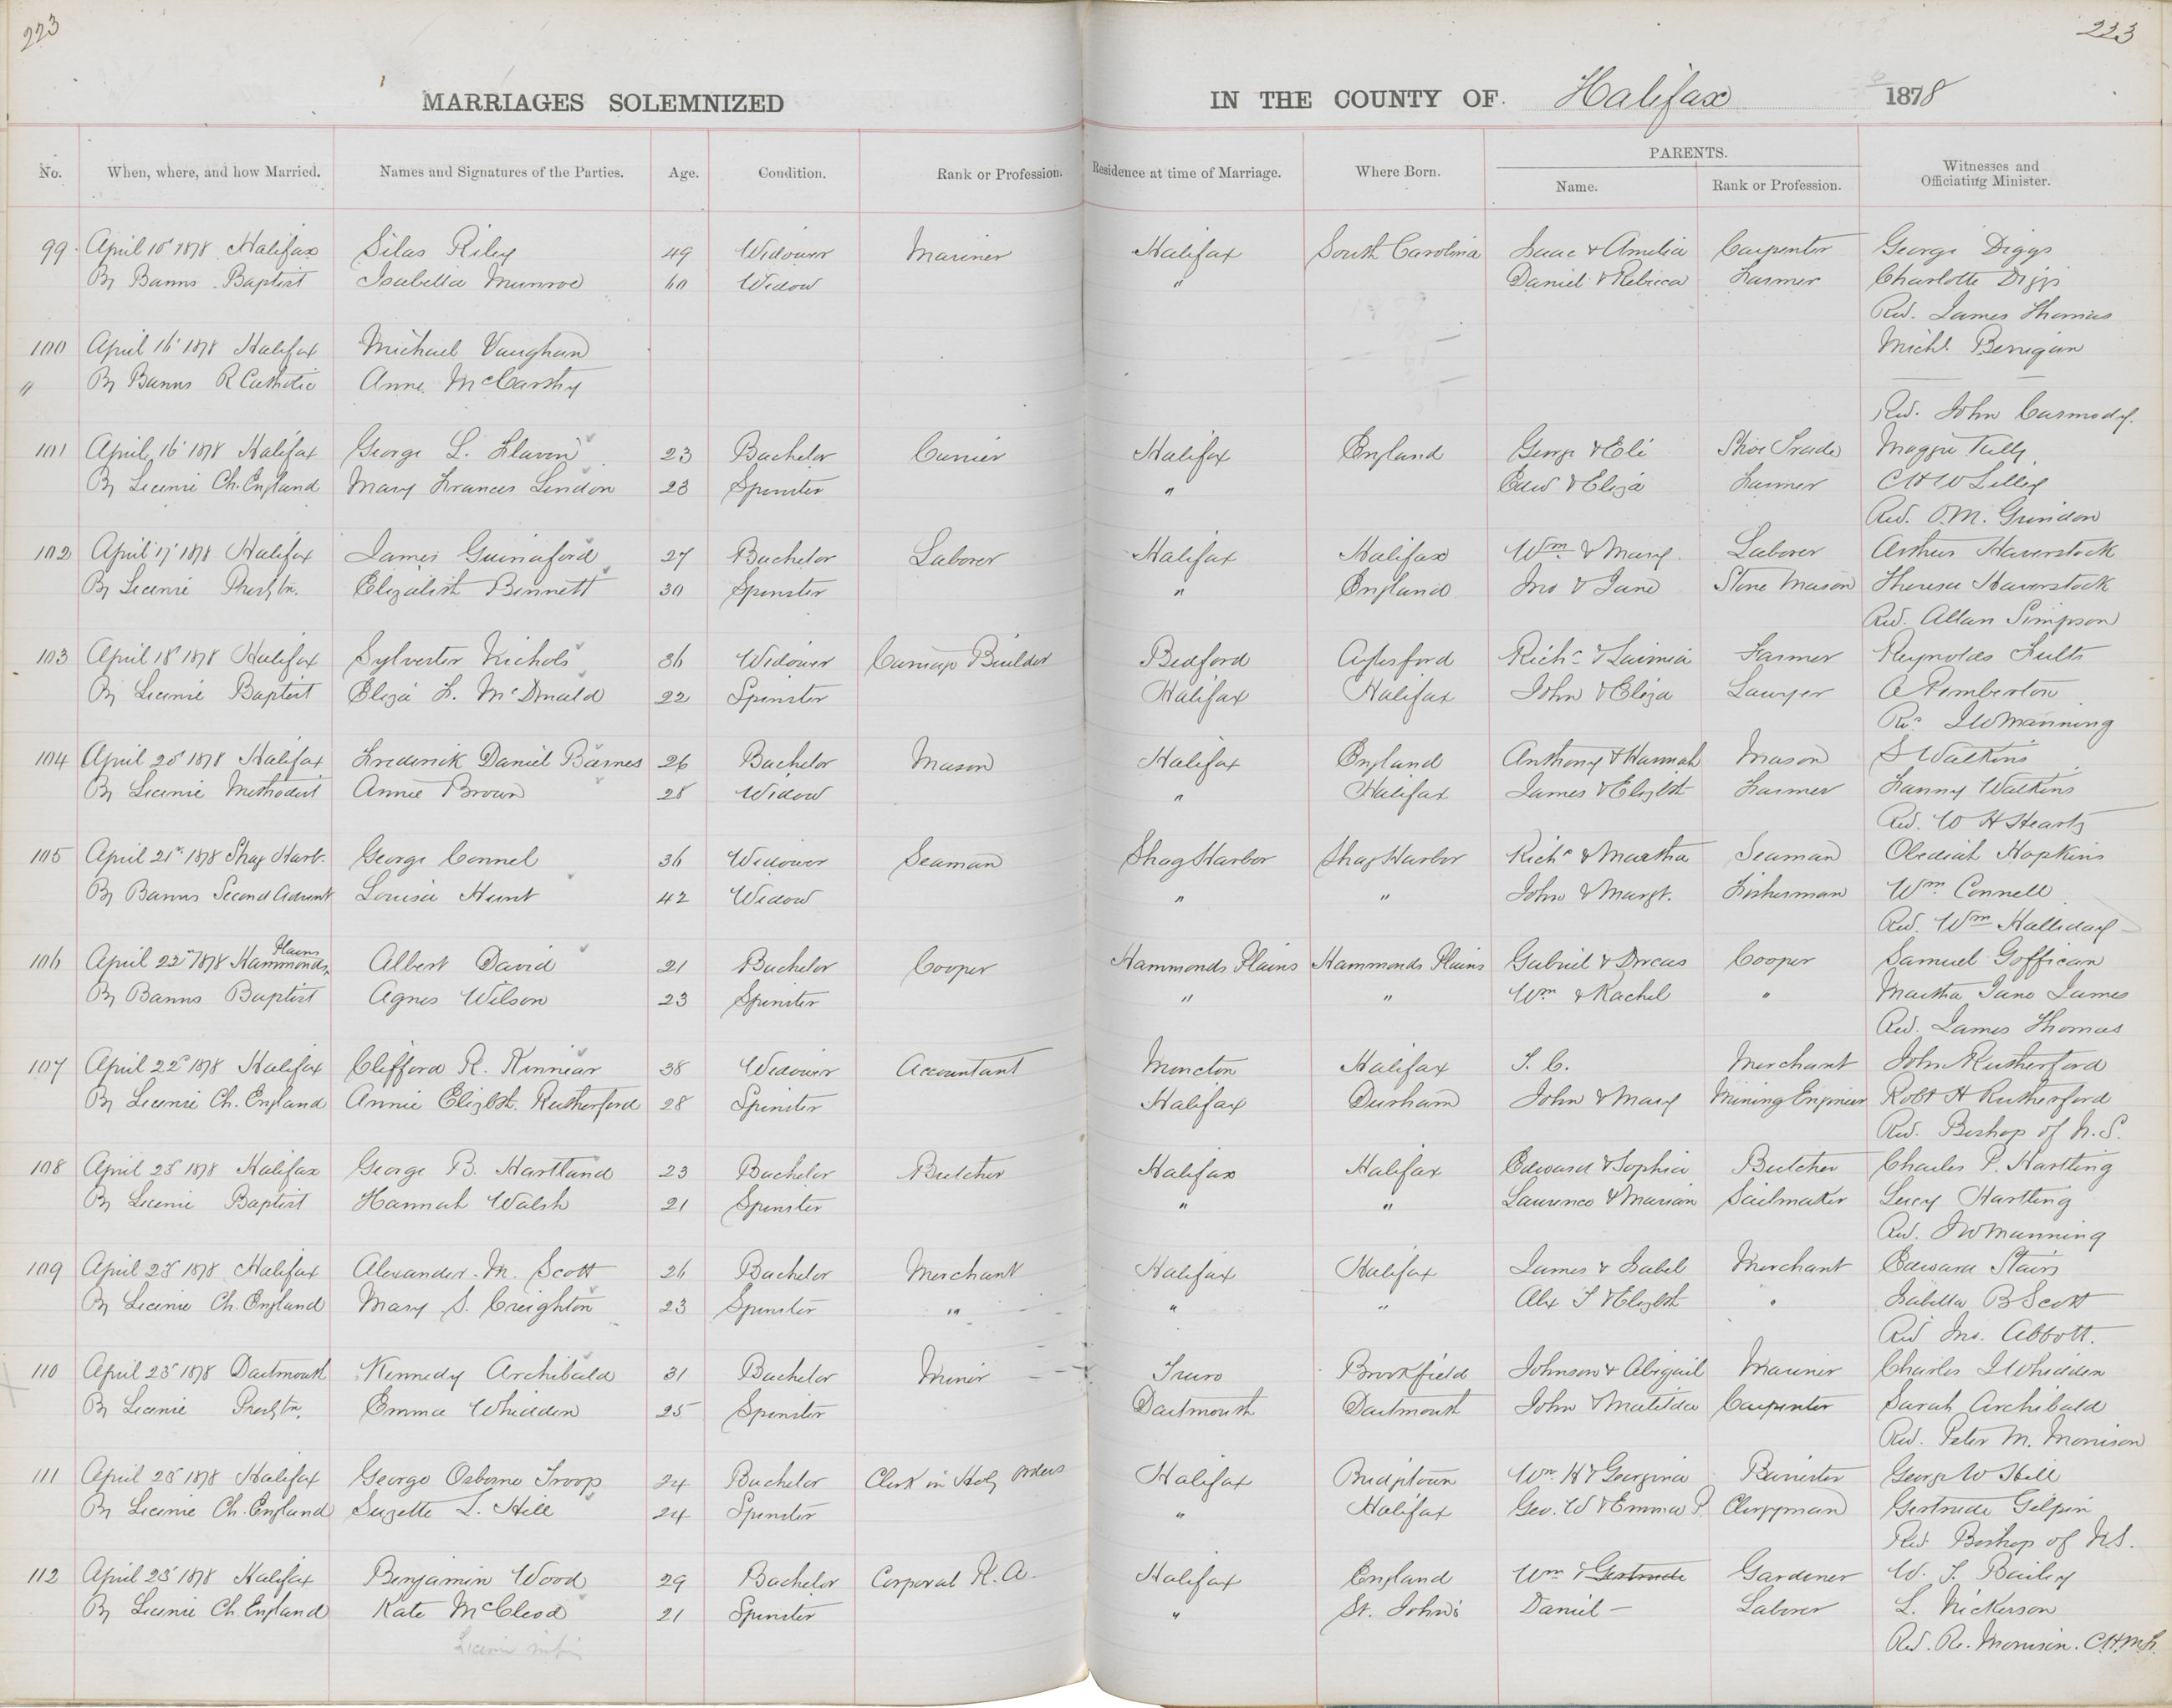 223
223
MARRIAGES SOLEMNIZED IN THE COUNTY OF Halifax 1878
No. When, where, and how Married. Names and Signatures of the Parties. Age. Condition. Rank or Profession. Residence at time of Marriage. Where Born. PARENTS. Name. Rank or Profession. Witnesses and Officiating Minister.
99 April 10 1878 Halifax Silas Riley 49 Widower Mariner Halifax South Carolina Isaac & Amelia Carpenter George Diggs
By Banns Baptist Isabella Munroe 60 Widow " Daniel & Rebecca Farmer Charlotte Diggs
Rev. James Thomas
100 April 16 1878 Halifax Michael Vaughan Michl. Berrigan
" By Banns R Catholic Anne McCarthy
Rev. John Carmody.
101 April 16 1878 Halifax George L. Flavin 23 Bachelor Currier Halifax England George & Eli Shoe Trade Maggie Tully
By License Ch. England Mary Frances Lindon 23 Spinster " Edw & Eliza Farmer C H W Lilly
Rev. O.M. Grindon
102 April 17 1878 Halifax James Guinaford 27 Bachelor Laborer Halifax Halifax Wm & Mary Laborer Arthur Haverstock
By License Presbtn. Elizabeth Bennett 30 Spinster " England Jno & Jane Stone Mason Theresa Haverstock
Rev. Allan Simpson
103 April 18 1878 Halifax Sylvester Nichols 36 Widower Carriage Builder Bedford Aylesford Richd & Farmer Reynolds Fults
By License Baptist Eliza F. McDonald 22 Spinster Halifax Halifax John & Eliza Lawyer A Pemberton
Rev J W Manning
104 April 20 1878 Halifax Frederick Daniel Barnes 26 Bachelor Mason Halifax England Anthony & Hannah Mason S Watkins
By License Methodist Annie Brown 28 Widow " Halifax James & Elizbth Farmer Fanny Watkins
Rev. W H Heartz
105 April 21st 1878 Shag Harb. George Connel 36 Widower Seaman Shag Harbor Shag Harbor Richd & Martha Seaman Obediah Hopkins
By Banns Second Advent Louisa Hunt 42 Widow " " John & Margt. Fisherman Wm Connell
Rev. Wm Halliday
106 April 22nd 1878 Hammonds Plains Albert David 21 Bachelor Cooper Hammonds Plains Hammonds Plains Gabriel & Dorcas Cooper Samuel Goffican
By Banns Baptist Agnes Wilson 23 Spinster " " Wm & Rachel " Martha Jane James
Rev. James Thomas
107 April 22 1878 Halifax Clifford R. Kinnear 38 Widower Accountant Moncton Halifax T. C. Merchant John Rutherford
By License Ch. England Annie Elizbth. Rutherford 28 Spinster Halifax Durham John & Mary Mining Engineer Robt H Rutherford
Rev. Bishop of N.S.
108 April 23 1878 Halifax George B. Hartland 23 Bachelor Butcher Halifax Halifax Edward & Sophia Butcher Charles P. Hartling
By License Baptist Hannah Walsh 21 Spinster " " Laurence & Marian Sailmaker Lucy Hartling
Rev. J W Manning
109 April 23 1878 Halifax Alexander M. Scott 26 Bachelor Merchant Halifax Halifax James & Isabel Merchant Edward Stairs
By License Ch. England Mary S. Creighton 23 Spinster " " " Alex T & Elizbth " Isabella B Scott
Rev Jno. Abbott.
110 April 23 1878 Dartmouth Kennedy Archibald 31 Bachelor Miner Truro Brookfield Johnson & Abigail Mariner Charles J Whidden
By License Presbtn. Emma Whidden 25 Spinster Dartmouth Dartmouth John & Matilda Carpenter Sarah Archibald
Rev. Peter M. Morrison
111 April 25 1878 Halifax George Osborne Troop 24 Bachelor Clerk in Holy Orders Halifax Bridgtown Wm. H & Georgina Barrister George W Hill
By License Ch. England Suzette L. Hill 24 Spinster " Halifax Geo. W & Emma P. Clergyman Gertrude Gilpin
Rev. Bishop of N.S.
112 April 25 1878 Halifax Benjamin Wood 29 Bachelor Corporal R.A. Halifax England Wm & Gertrude Gardener W. T. Bailey
By License Ch. England Kate McCleod 21 Spinster " St. John's Daniel — Laborer L. Nickerson
Rev. Re. Morrison. C.H.M.F.